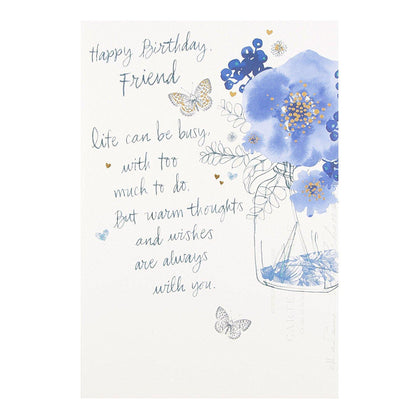 Happy Birthday,
Friend
Life can be busy,
with too
much to do.
But warm thoughts
and wishes
are always
with you.